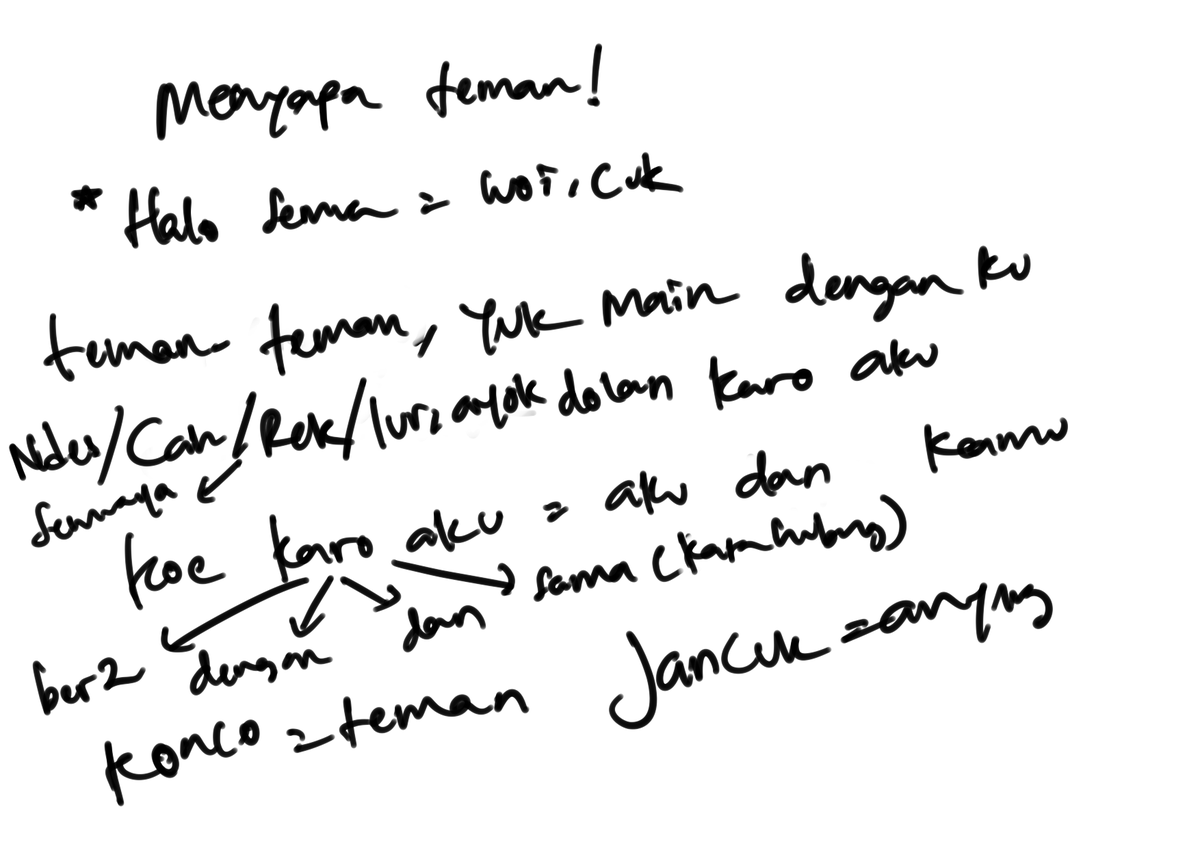 Menyapa teman!
* Halo semua = woi, cuk
teman-teman, Yuk main dengan ku
Ndes/Cah/Rek/lur, ayok dolan karo aku
Semuaya
koe karo aku = aku dan kamu
ber2 dengan dan sama (kata hubung)
konco = teman
Jancuk = anying